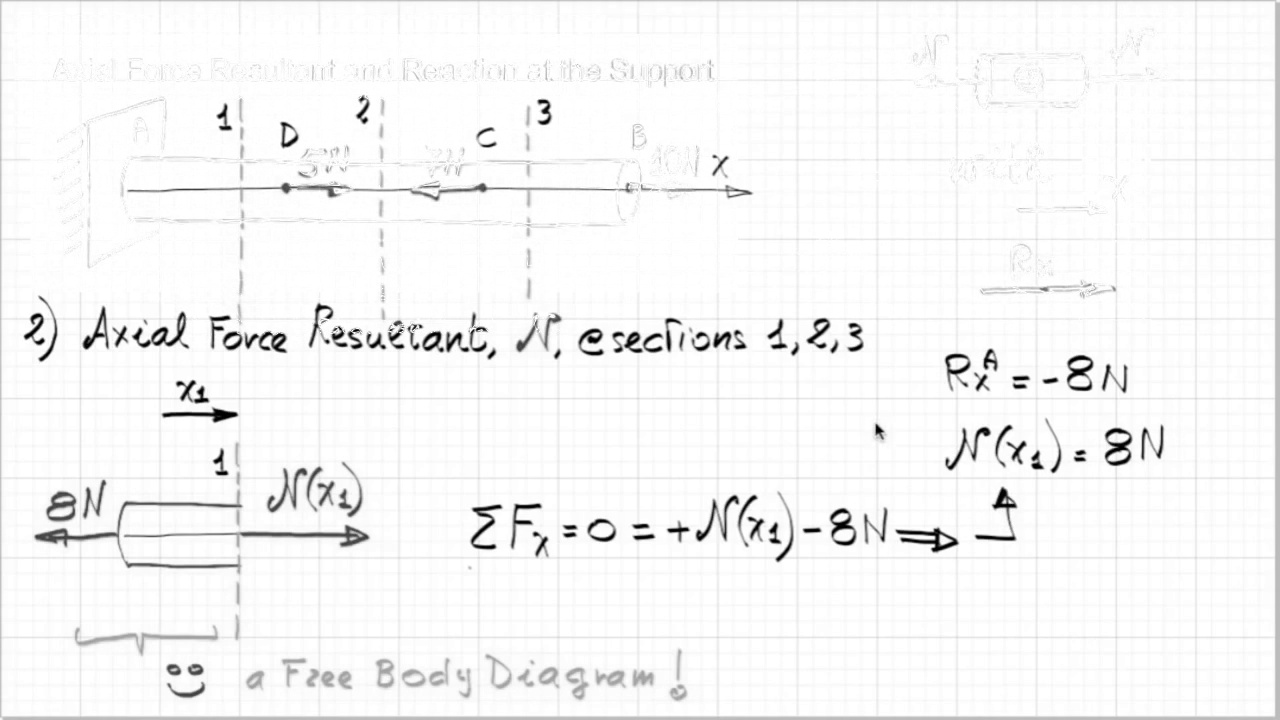 Axial Force Resultant and Reaction at the Support
N N
A 1 D 5N 2 7N C 3 B 10N x
x
Rx
2) Axial Force Resultant, N, @sections 1,2,3
RxA = -8N
x1
N(x1) = 8N
1
8N N(x1)
ΣFx = 0 = +N(x1) - 8N ⇒
a Free Body Diagram!